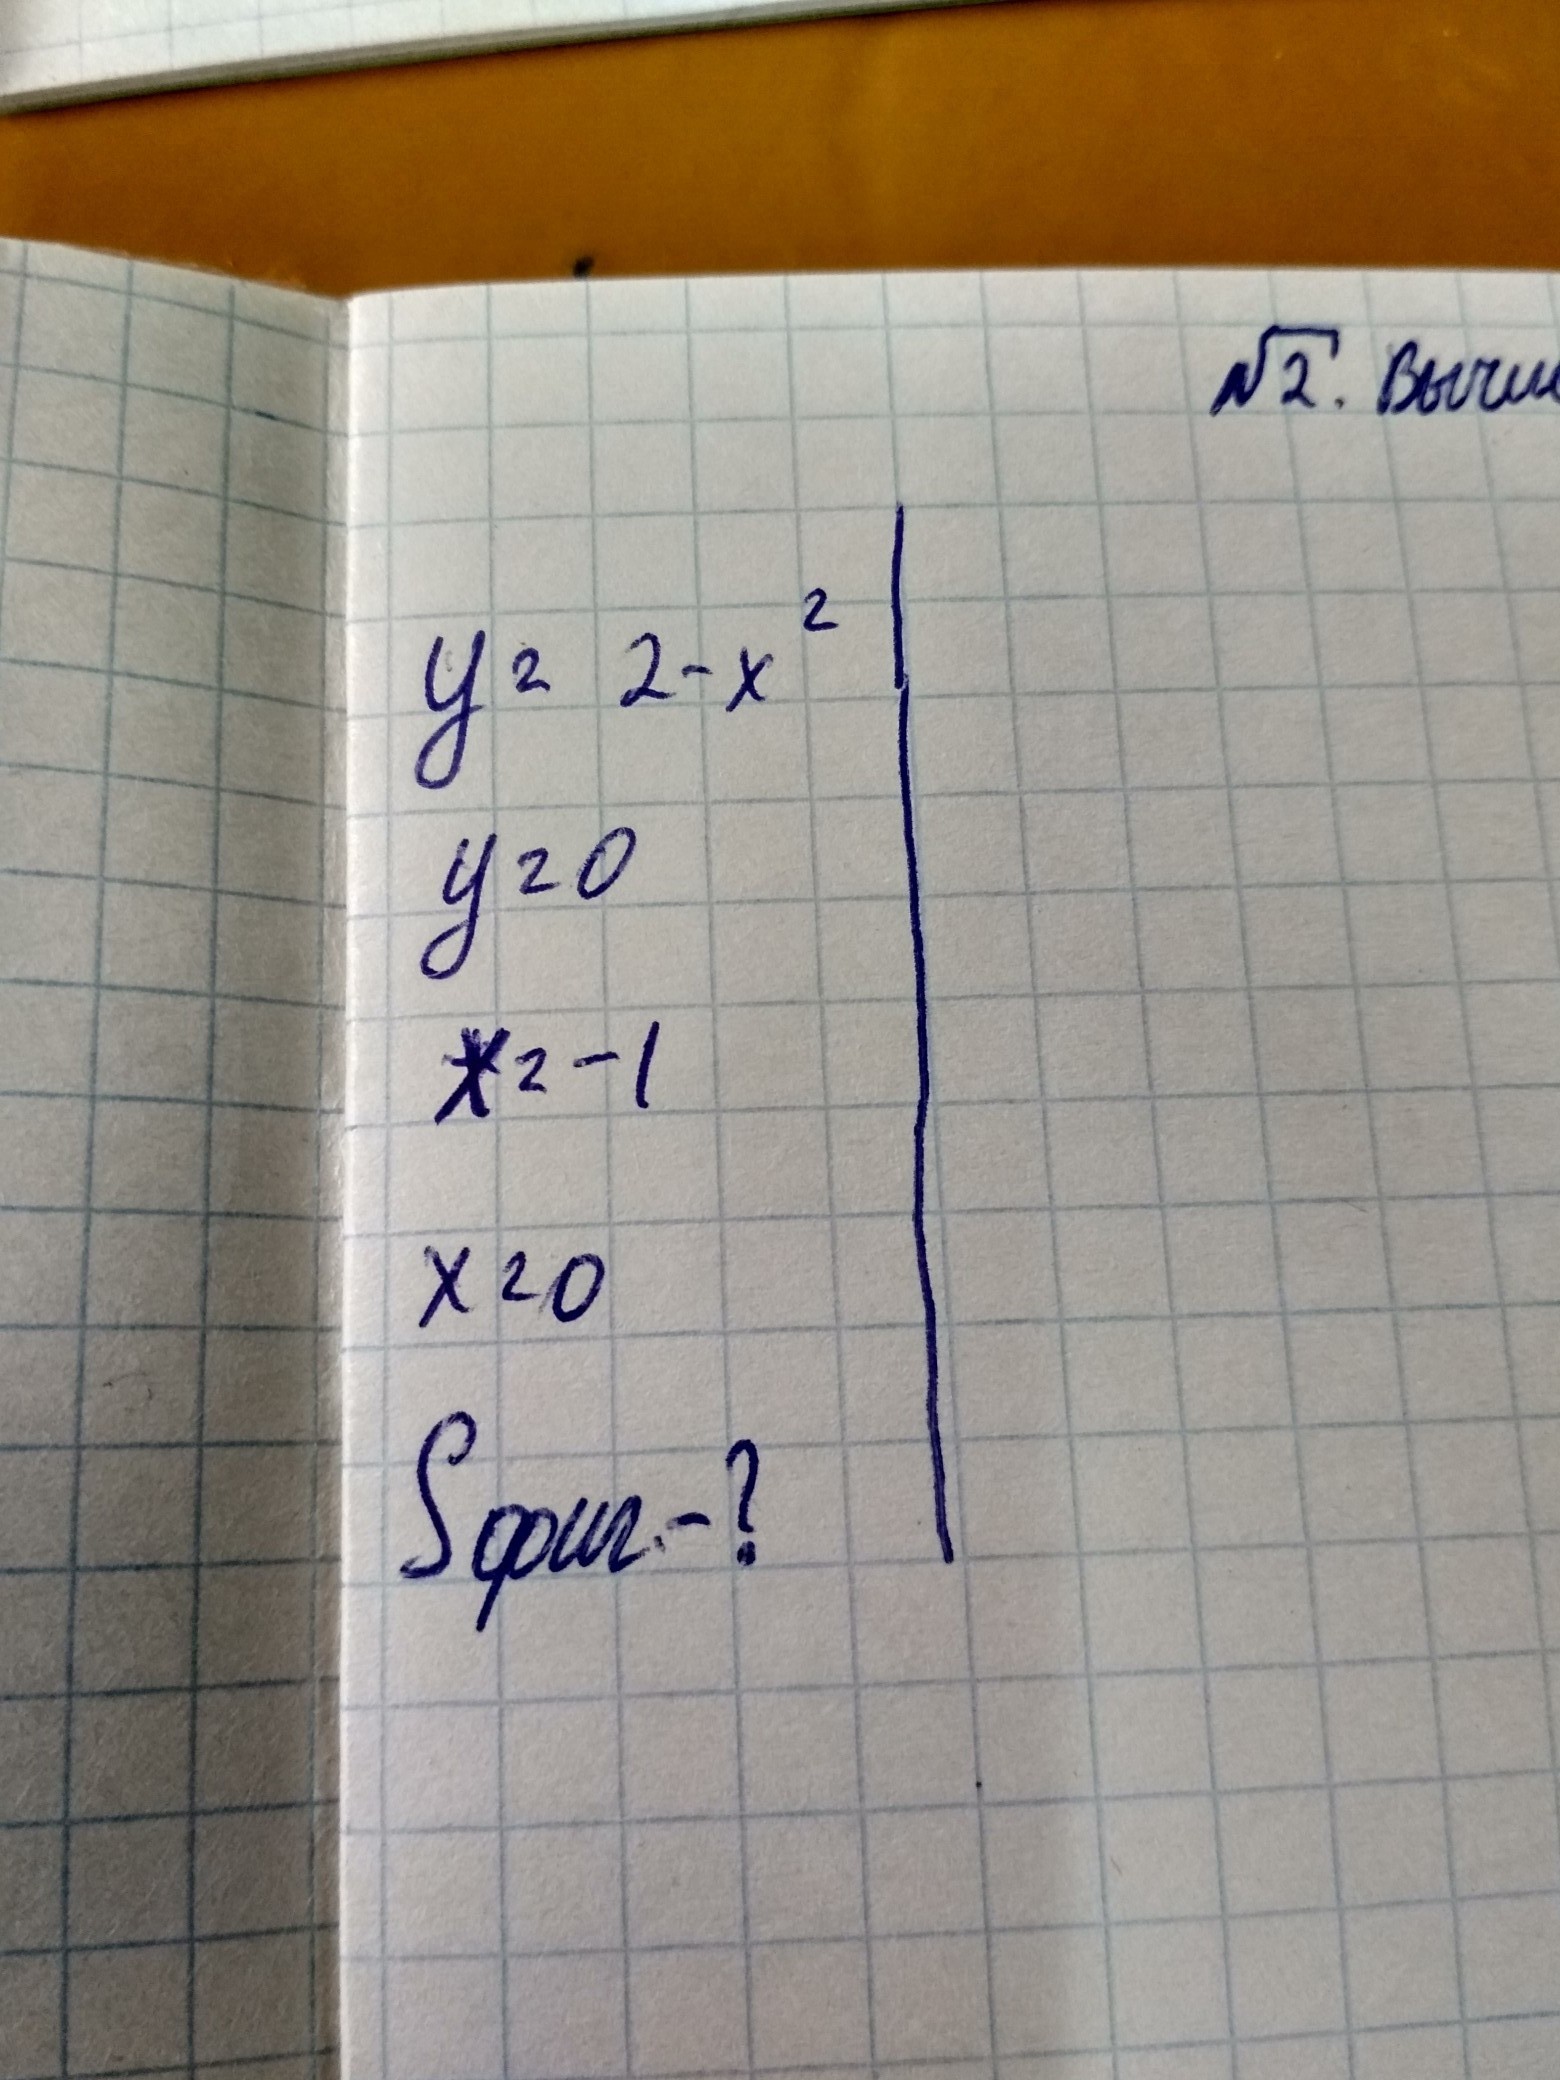 √2. Вычис
y = 2-x²
y=0
x=-1
x=0
Sфиг.-?